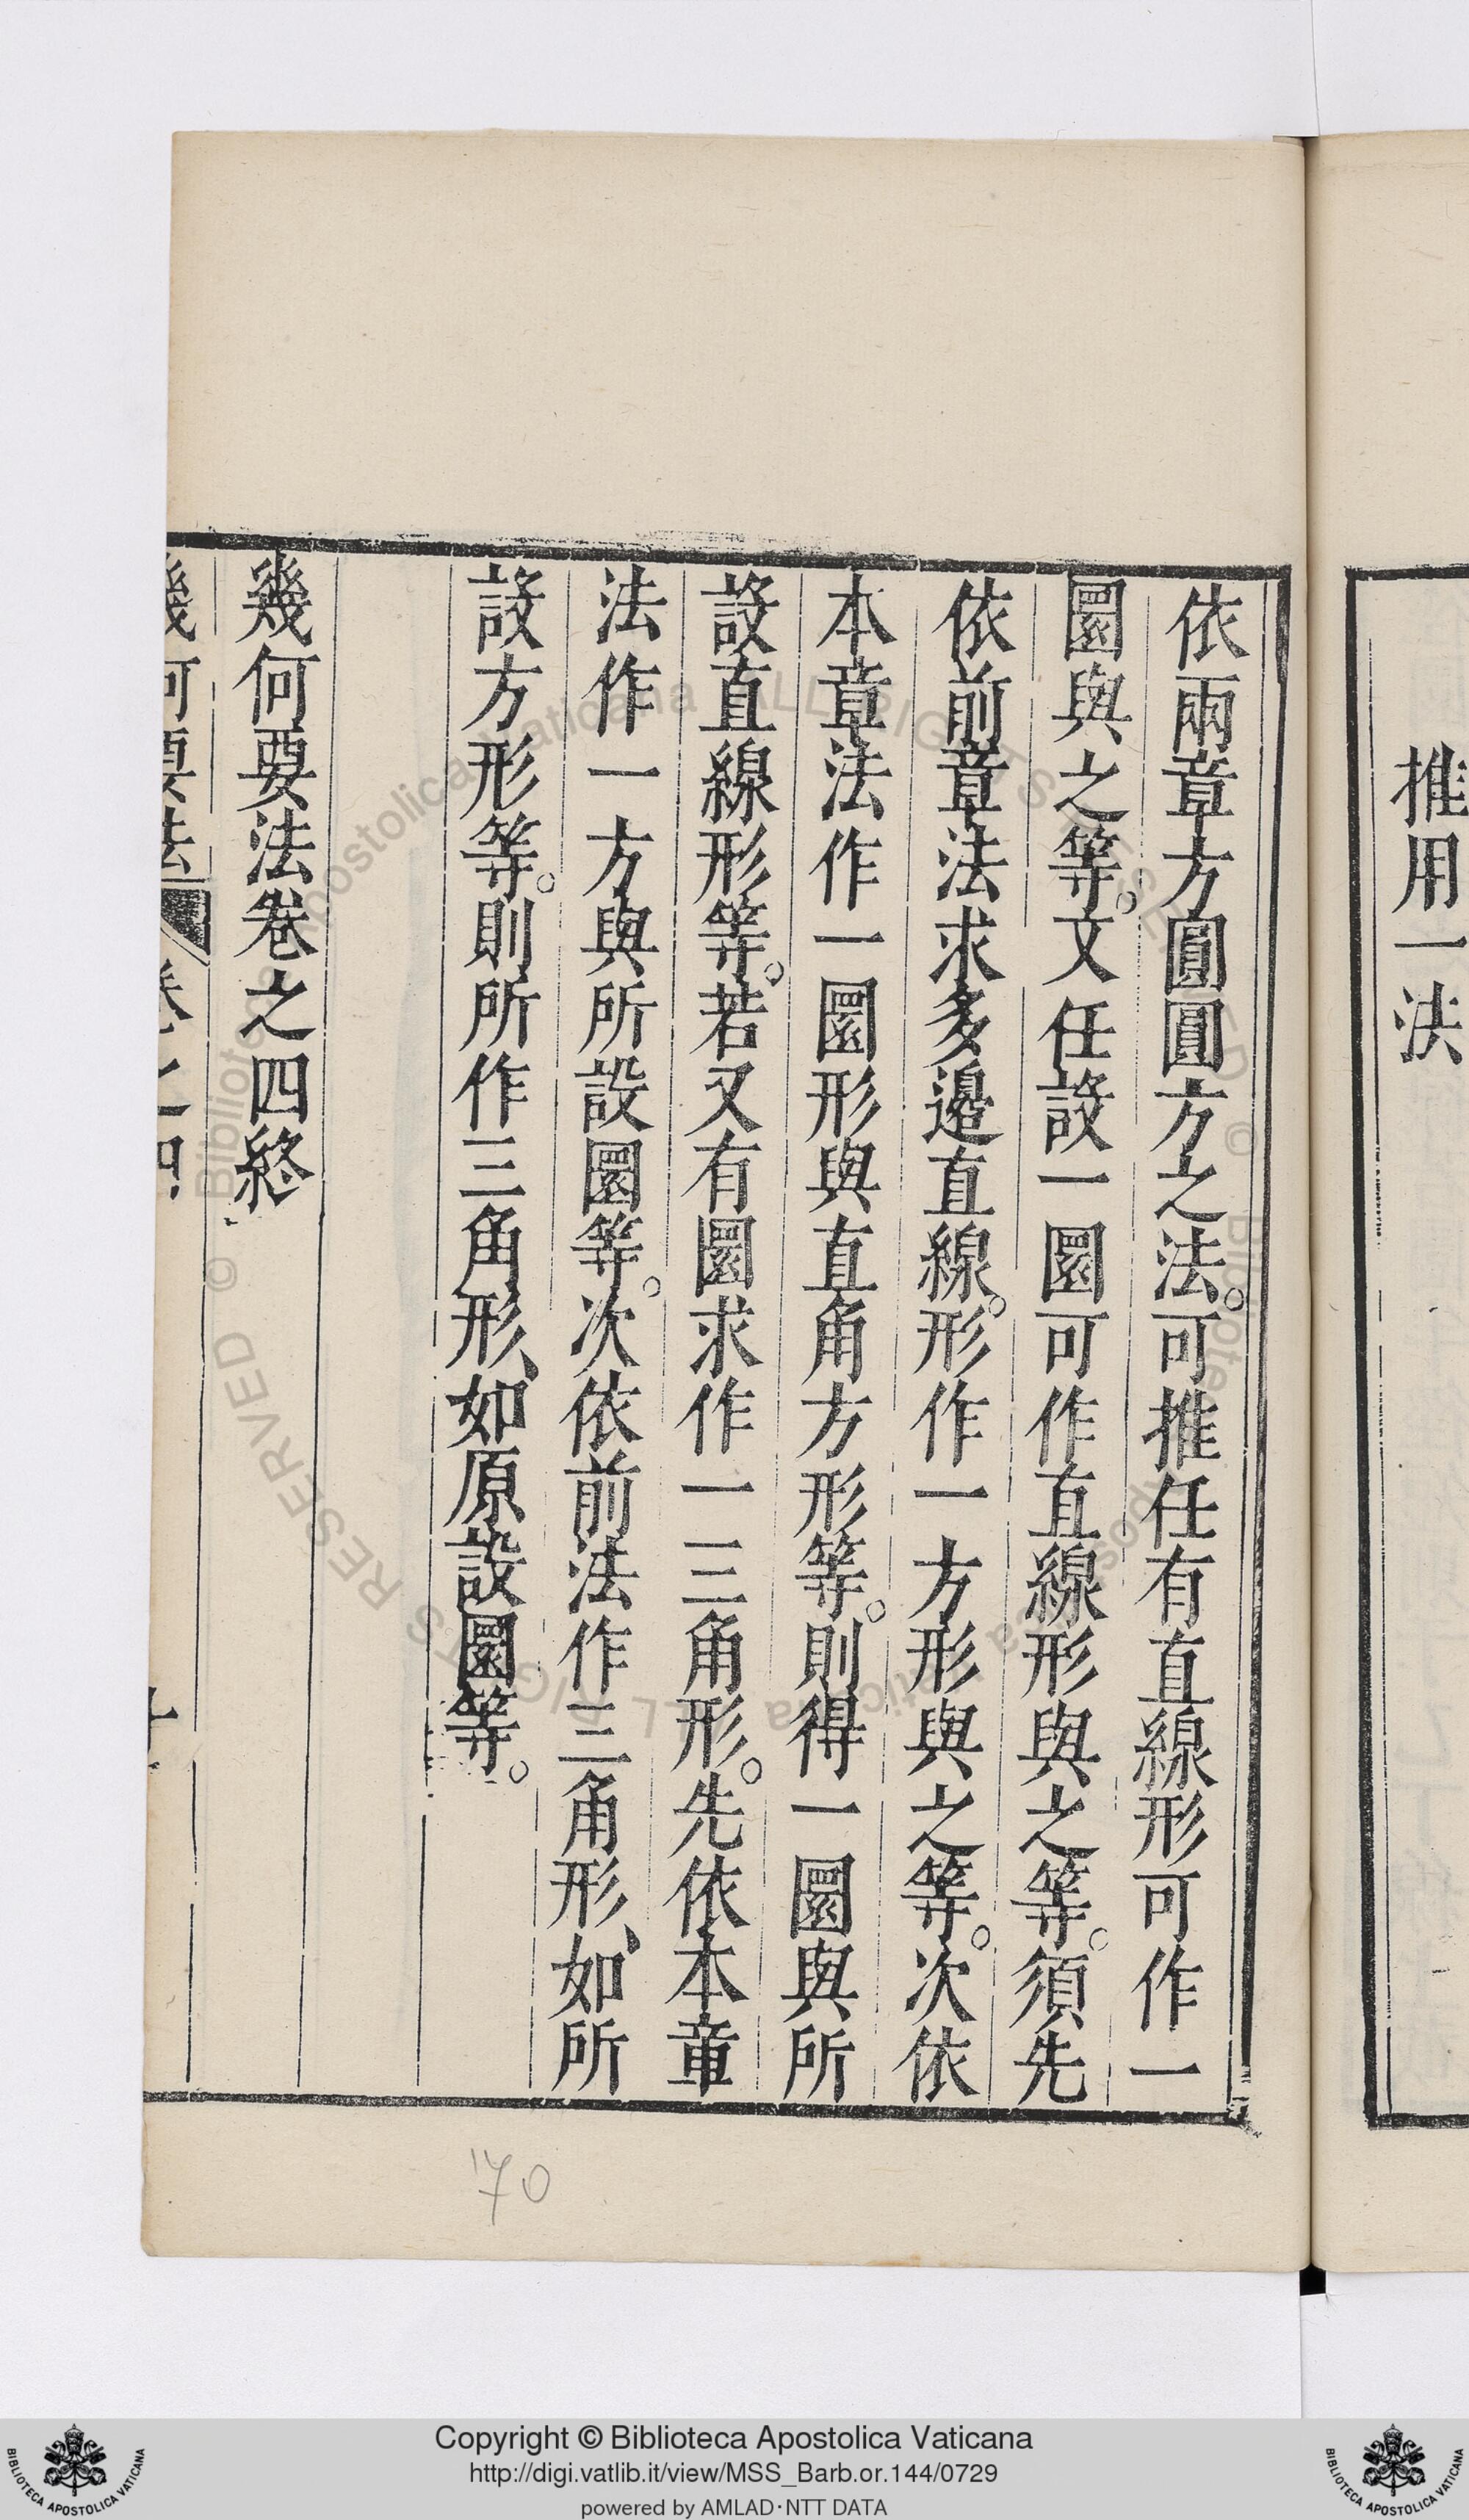 推用一法
依兩章方圓圓方之法。可推任有直線形可作一
圜與之等。文任設一圜可作直線形與之等。須先
依前章法求多邉直線。形作一方形與之等。次依
本章法作一圜形與直角方形等。則得一圜與所
設直線形等。若又有圜求作一三角形。先依本章
法作一方與所設圜等。次依前法作三角形、如所
設方形等。則所作三角形、如原設圜等。
幾何要法卷之四終
幾何要法 卷之四
170
Copyright © Biblioteca Apostolica Vaticana
http://digi.vatlib.it/view/MSS_Barb.or.144/0729
powered by AMLAD·NTT DATA
BIBLIOTECA APOSTOLICA VATICANA
BIBLIOTECA APOSTOLICA VATICANA